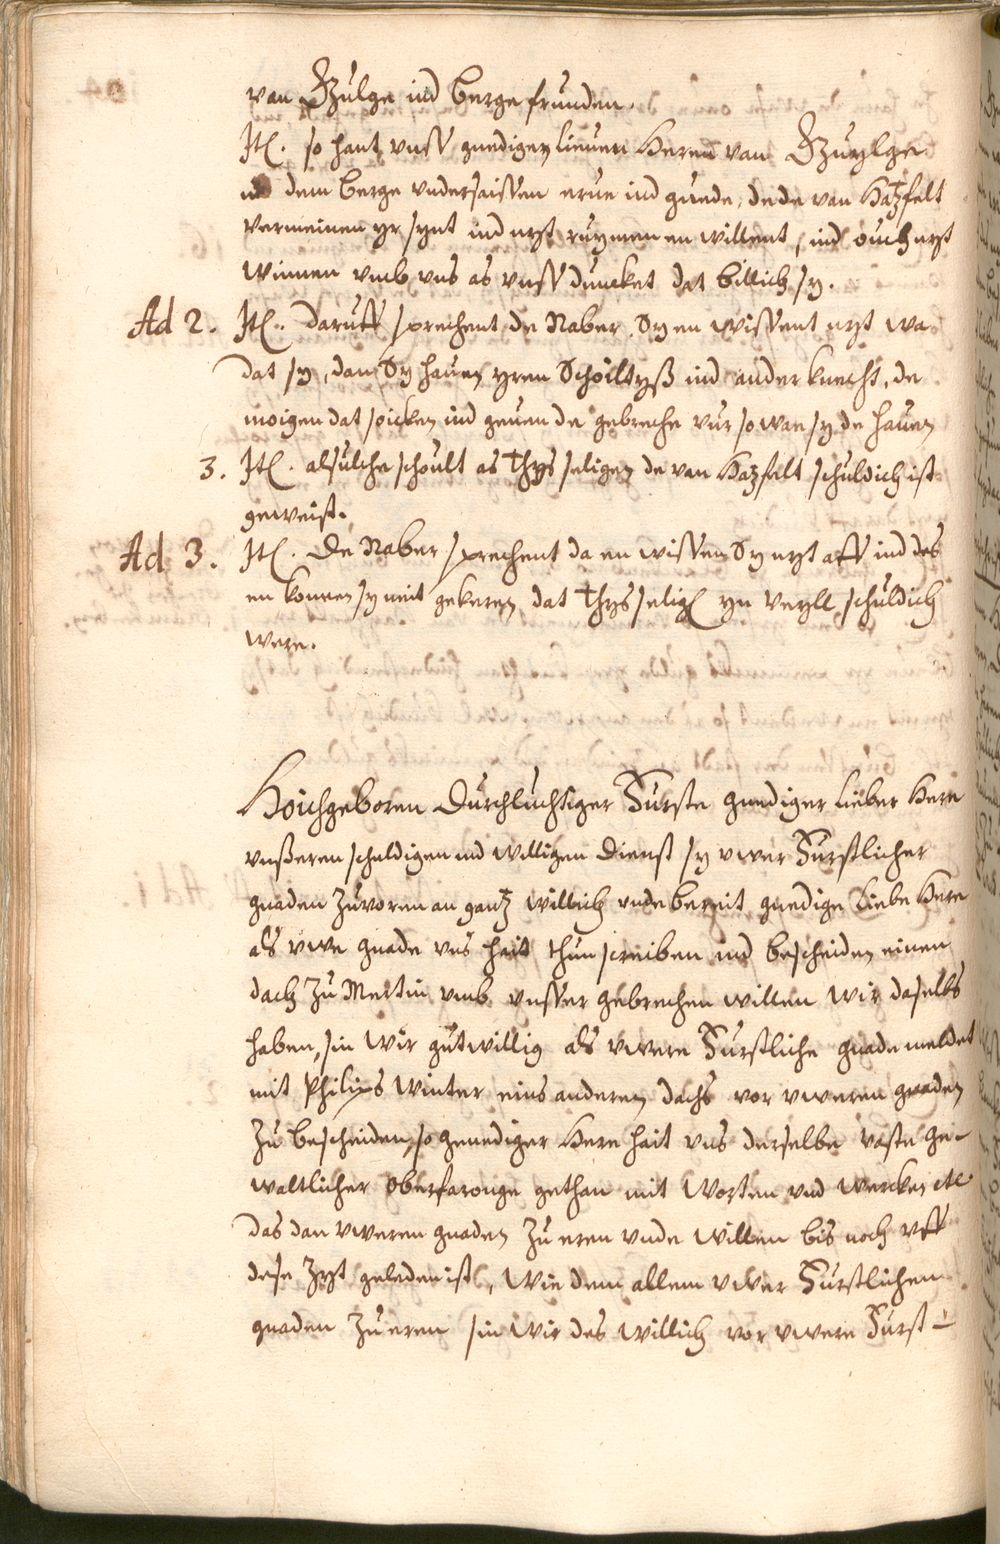 van Gzulge ind Berge frunden.
Itē. so hant unss gnedigen lieven heren van Gzuylge
dem Berge undersaissen erve ind guede, de de van Hatzfelt
vermeinen yr synt ind nyt ruymen en willent, ind ouch nyt
winnen umb uns as unss duncket dat billich sy.
Ad 2. Itē. daruff sprechent de Naber, Sy en wissent nyt wa
dat sy, dan Sy haven yren Schoiltyß ind ander knecht, de
moigen dat soicken ind geven de gebreche vur so wan sy de haven
3. Itē. alsulche schoult as Thys seligen de van Hatzfelt schuldich ist
geweist.
Ad 3. Itē. De Naber sprechent da en wissen Sy nyt aff ind des
en konnen sy neit gekeren, dat Thys selig yn veyll schuldich
were.
Hoichgeboren Durchluchtiger Furste gnediger Lieber Here
unßeren schuldigen und willigen dienst sy uwer Furstlicher
gnaden zuvoren an gantz willich unde bereit gnedige Liebe Here
als uwe gnade uns hait thun screiben und bescheiden einen
dach zu Mertin umb unsser gebrechen willen wir daselbs
haben, sin wir gutwillig als uwere Furstliche gnade meldet
mit Philips Winter eins anderen dachs vor uweren gnaden
zu bescheiden, so genediger Here hait uns derselbe vaste ge-
waltlicher oberfaronge gethan mit Worten und wercken etc
das dan uweren gnaden zu eren unde willen bis noch uff
dese zyt geleden ist, Wie dem allem uwer Furstlichen
gnaden zu eren sin wir des willich vor uwere Furst-